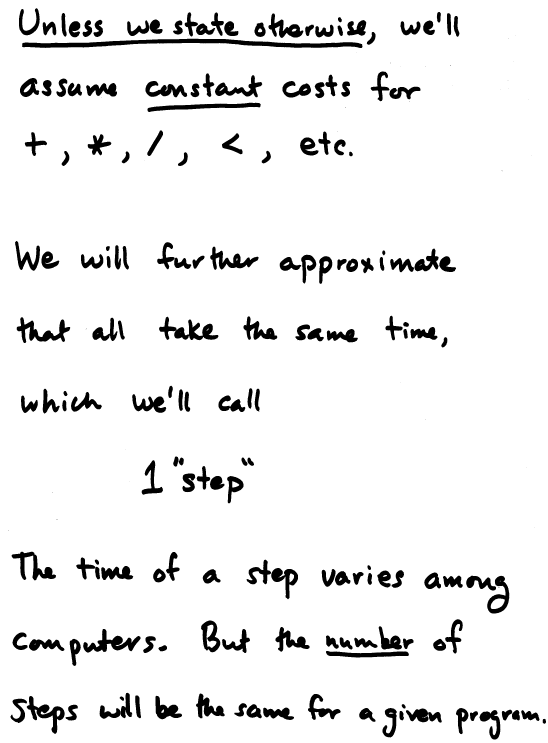 Unless we state otherwise, we'll
assume constant costs for
+, *, /, <, etc.
We will further approximate
that all take the same time,
which we'll call
1 "step"
The time of a step varies among
computers. But the number of
steps will be the same for a given program.